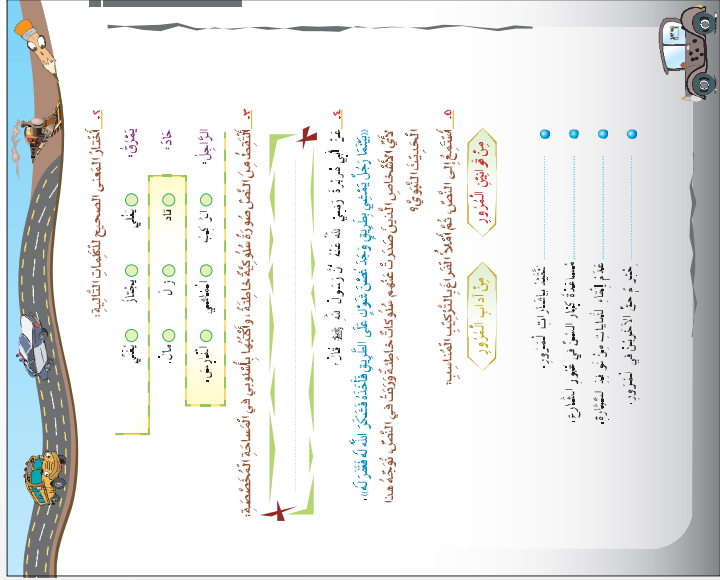 ٢. أَخْتَارُ الْمَعْنى الصَّحيحَ لِلْكَلِماتِ التّالِيَةِ:
يَمْرُقُ: يُغَطّي يَجْتازُ يُغَنّي
حادَ: قادَ زالَ مالَ.
الرّاجِلُ: الرّاكِبُ الماشي الحارِسُ.
٣. أَلْتَقِطُ مِنَ النَّصِّ صورَةً سُلوكِيَّةً خاطِئَةً، وَأَكْتُبُها بِأُسْلوبي في الْمِساحَةِ الْمُخَصَّصَةِ:
٤. عَنْ أَبي هُرَيْرَةَ رَضِيَ اللهُ عَنْهُ أَنَّ رَسولَ اللهِ ﷺ قالَ:
((بَيْنَما رَجُلٌ يَمْشي بِطَريقٍ وَجَدَ غُصْنَ شَوْكٍ عَلى الطَّريقِ فَأَخَذَهُ فَشَكَرَ اللهُ لَهُ فَغَفَرَ لَهُ)).
لِأَيِّ الْأَشْخاصِ الَّذينَ صَدَرَتْ عَنْهُم سُلوكاتٌ خاطِئَةٌ وَرَدَتْ في النَّصِّ، نُوَجِّهُ هذا
الْحَديثَ النَّبَوِيَّ؟
٥. أَسْتَمِعُ إِلى النَّصِّ، ثُمَّ أَمْلَأُ الْفَراغَ بِالتَّرْكيبِ الْمُناسِبِ:
مِنْ قَوانينِ الْمُرورِ مِنْ آدابِ الْمُرورِ
التَّقَيُّدُ بِإِشاراتِ الْمُرورِ.
مُساعَدَةُ كِبارِ السِّنِّ في عُبورِ الشّارِعِ.
عَدَمُ إِلْقاءِ النُّفاياتِ مِنْ نَوافِذِ السَّيّارَةِ.
احْتِرامُ حَقِّ الْآخَرينَ في الْمُرورِ.